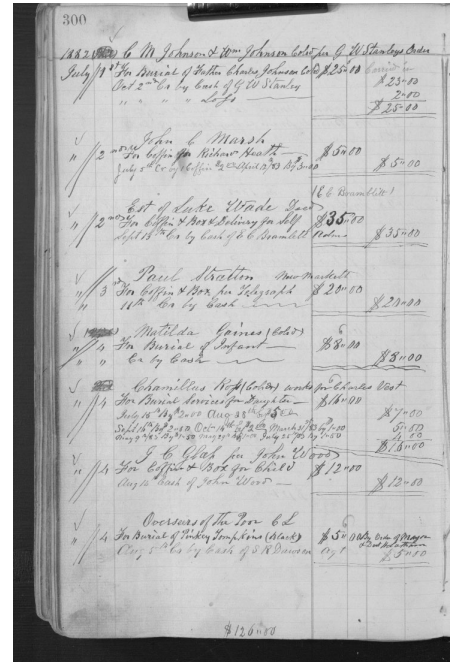 300
1882 C M Johnson & Wm Johnson Cold per G W Stanleys Order
July 1st For Burial of Father Charles Johnson Cold $25"00
Oct 2nd Cr by Cash of G W Stanley $23"00
" " " " " Logs 2"00
$25"00
John C Marsh
" 2nd For Coffin for Richard Heath $5"00
July 5th Cr by Coffin $2 April 83 By 3"00 $5"00
(E C Bramblitt)
Est of Luke Wade Decd
" 2nd For Coffin & Box & Delivery for Self $35"00
Sept 13th Cr by Cash of E C Bramblitt Admr $35"00
Paul Stratton New Markett
" 3rd For Coffin & Box per Telegraph $20"00
11th Cr by Cash $20"00
Matilda Gaines (Cold)
" 4 For Burial of Infant $8"00
" " Cr by Cash $8"00
Chamillus (Cold) works for Charles Vest
" 4 For Burial Services for Daughter $16"00
July 15th By $2"00 Aug $7"00
$16"00
J C Glah per John Wood
" 4 For Coffin & Box for Child $12"00
Aug 10 Cash of John Wood $12"00
Overseers of the Poor C L
" 4 For Burial of Pinkey Tompkins (Black) $5"00 By Order of Mayor
Aug 5th Cr by Cash of S R Dawson Agt $5"00
$126"00